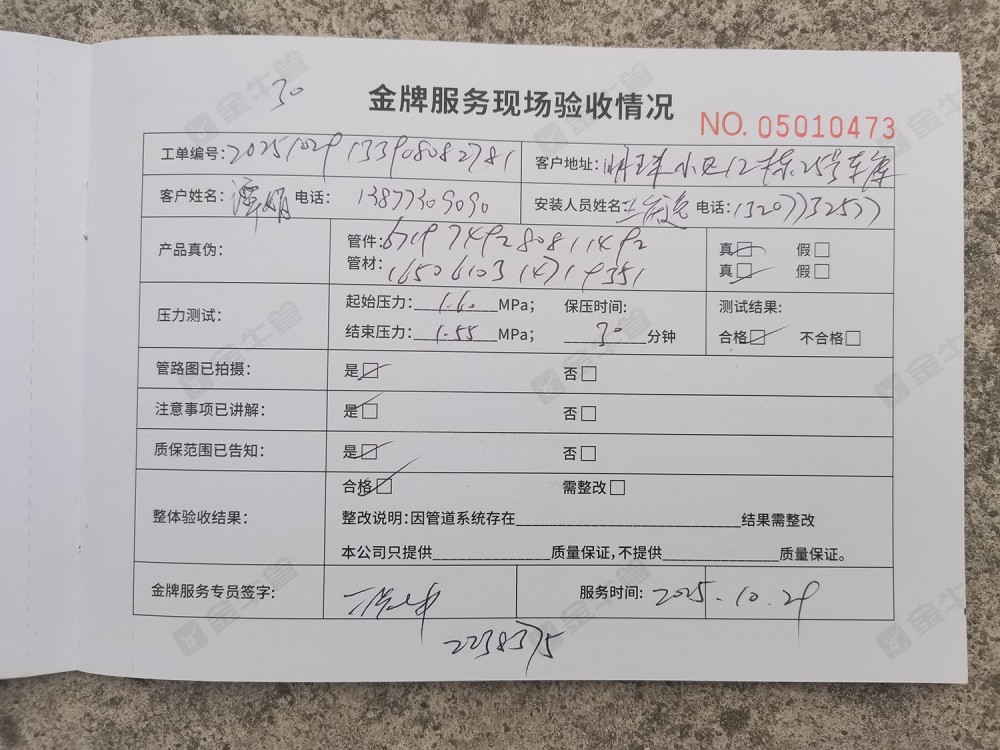 30
金牌服务现场验收情况
NO. 05010473
工单编号: 20251029133908082781 客户地址: 明珠小区12栋25号车库
客户姓名: 谭娟 电话: 13877309090 安装人员姓名 电话: 13207732577
产品真伪: 管件: 6719749280811492 真□ 假□
管材: 1650610314719351 真□ 假□
压力测试: 起始压力: 1.60 MPa; 保压时间: 测试结果:
结束压力: 1.55 MPa; 30 分钟 合格□ 不合格□
管路图已拍摄: 是□ 否□
注意事项已讲解: 是□ 否□
质保范围已告知: 是□ 否□
合格□ 需整改□
整体验收结果: 整改说明:因管道系统存在____结果需整改
本公司只提供____质量保证,不提供____质量保证。
金牌服务专员签字: 服务时间: 2025.10.29
2238375